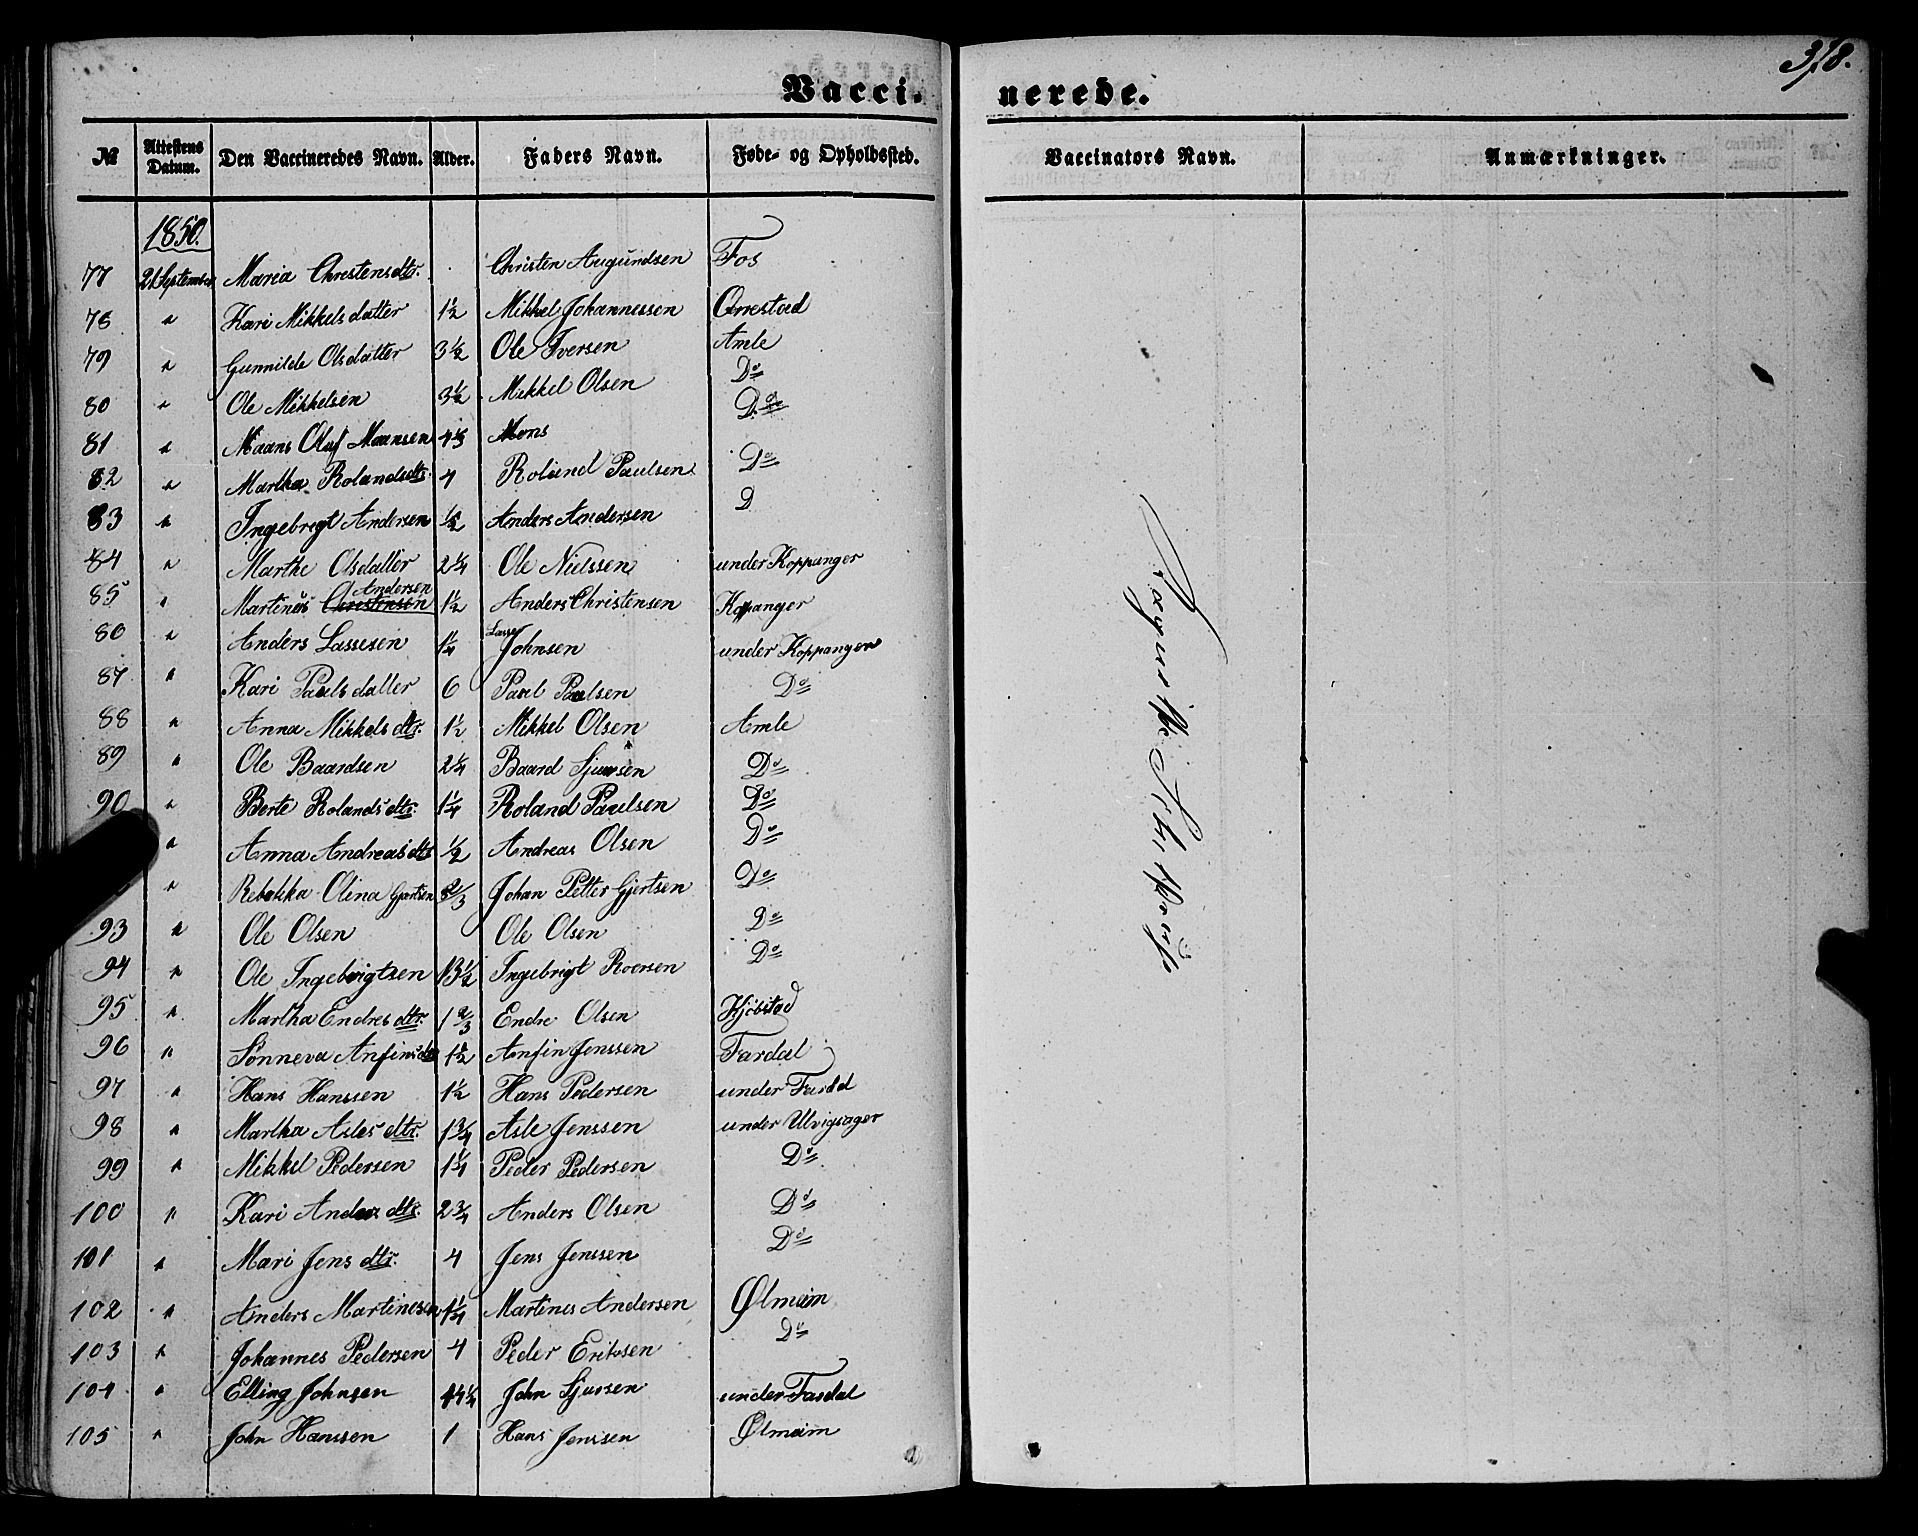 318.
Vacci. nerede.
№ Attestens Datum. Den Vaccineredes Navn. Alder. Faders Navn. Føde- og Opholdssted. Vaccinators Navn. Anmærkninger.
1850.
77 21 September Maria Christensdtr. Christen Augundsen Fos
78 " Kari Mikkelsdatter 1½ Mikkel Johannessen Orrestad
79 " Gunnilde Olsdatter 3½ Ole Iversen Amle
80 " Ole Mikkelsen 3½ Mikkel Olsen Do
81 " Maans Oluf Maansen Mons Do
82 " Martha Rolandsdtr. 4 Roland Paulsen Do
83 " Ingebregt Andersen ½ Anders Andersen D
84 " Marthe Olsdatter 2¼ Ole Nielssen under Koppanger
85 " Martinus Christensen Andersen 1½ Anders Christensen Koppanger
86 " Anders Lassesen 1¼ Lasse Johnsen under Koppanger
87 " Kari Paulsdatter 6 Paul Paulsen Do
88 " Anna Mikkelsdtr. 1½ Mikkel Olsen Amle
89 " Ole Baardsen 2¼ Baard Sjursen Do
90 " Berte Rolandsdtr. 1¼ Roland Paulsen Do
" Anna Andreasdtr ½ Andreas Olsen Do
" Rebekka Olina Gjertsen 2/3 Johan Petter Gjertsen Do
93 " Ole Olsen Ole Olsen Do
94 " Ole Ingebrigtsen 13½ Ingebrigt Roersen Do
95 " Martha Endresdtr. 1 2/3 Endre Olsen Kjöbstad
96 " Sønneva Anfinsdtr 1½ Anfin Jenssen Fardal
97 " Hans Hanssen 1½ Hans Pedersen under Fardal
98 " Martha Aslesdtr. 1¾ Asle Jenssen under Ulvigsager
99 " Mikkel Pedersen 1¼ Peder Pedersen Do
100 " Kari Andersdtr. 2¾ Anders Olsen Do
101 " Mari Jensdtr. 4 Jens Jenssen Do
102 " Anders Martinesen 1¼ Martines Andersen Ølmeim
103 " Johannes Pedersen 4 Peder Eriksen Do
104 " Elling Johnsen John Sjursen under Fardal
105 " John Hanssen 1 Hans Jenssen Ølmeim